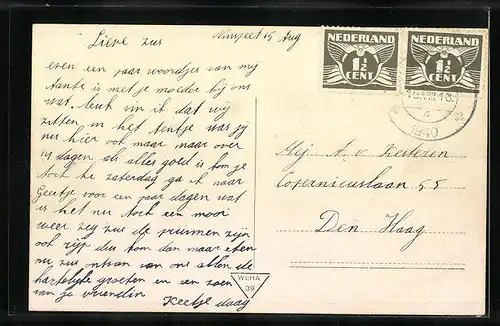 Lieve zus
Nunspeet 15 Aug
even een paar woordjes van my
tante is met je moeder bij ons
wat leuk vin ik dat wij
zitten in het tentje was jij
nu hier ook maar maar over
14 dagen als alles goed is kom je
toch he zaterdag ga ik naar
Geetje voor een paar dagen wat
is het nu toch een mooi
weer zeg zus de pruimen zijn
ook rijp dus kom dan maar eten
nu zus ontvan van ons allen de
hartelijke groeten en een zoen
van je vriendin
Keetje daag
NEDERLAND
1½
CENT
NEDERLAND
1½
CENT
15.VIII.10.
4
1940
Mej A. v. Kesteren
Copernicuslaan 55
Den Haag
WEHA
39